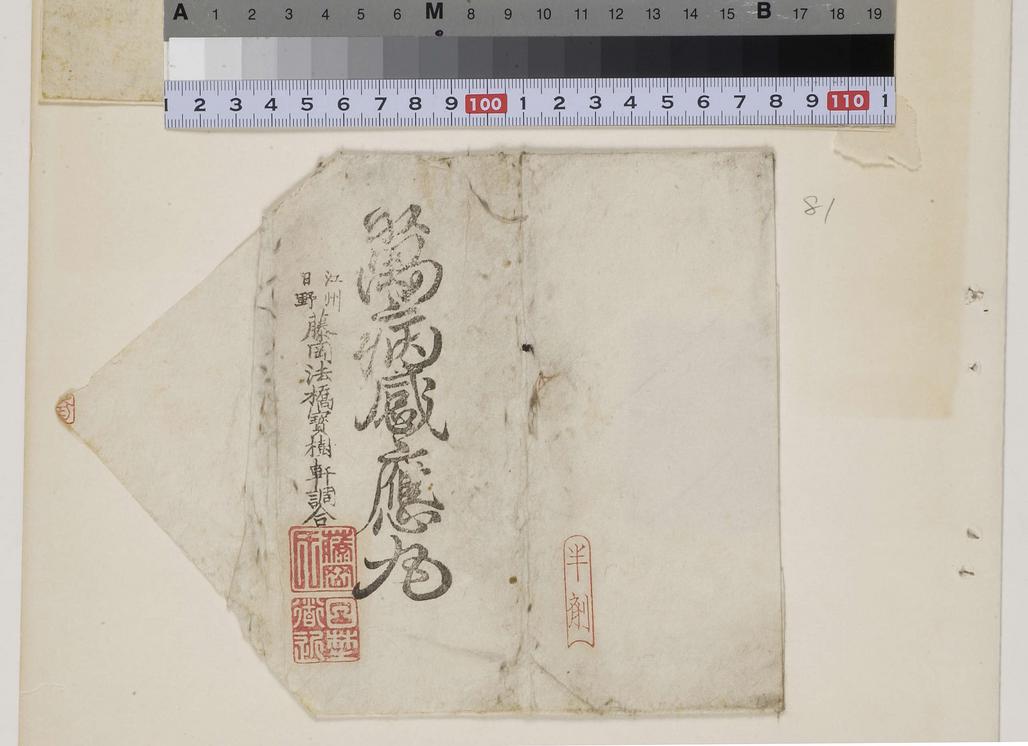 A 1 2 3 4 5 6 M 8 9 10 11 12 13 14 15 B 17 18 19
1 2 3 4 5 6 7 8 9 100 1 2 3 4 5 6 7 8 9 110 1
81
半剤
萬病感應丸
江州
日野
藤岡法橋寳樹軒調合